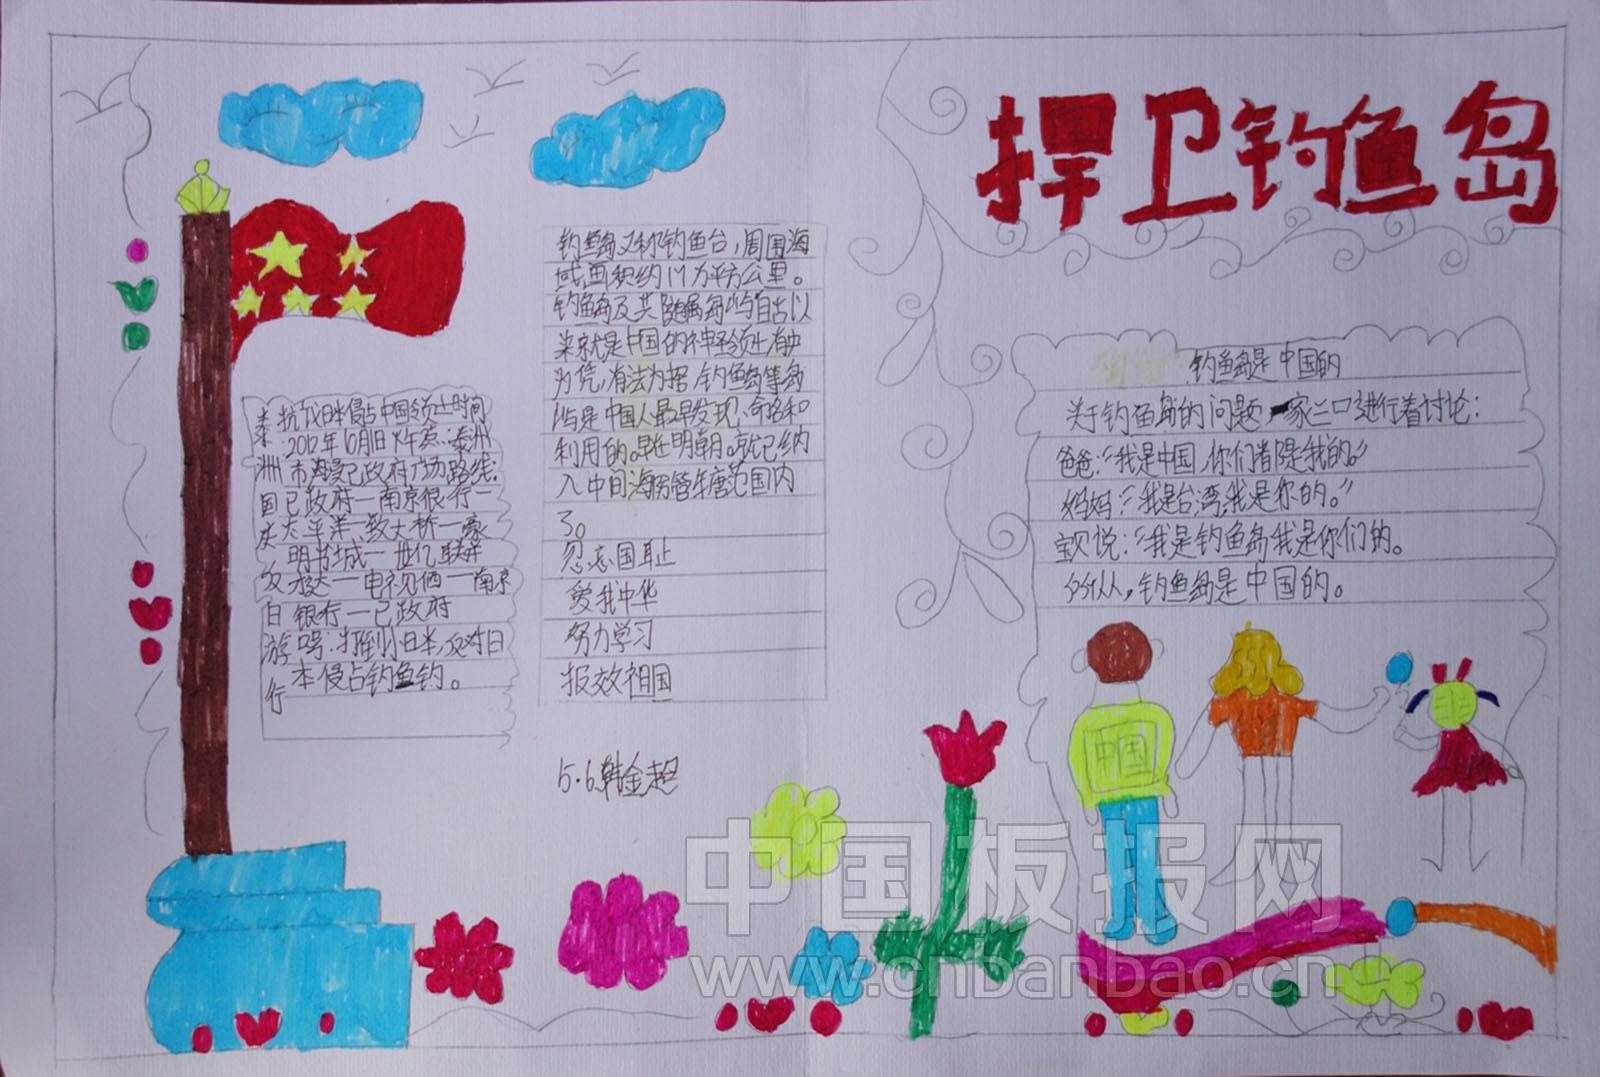 捍卫钓鱼岛
钓鱼岛又称钓鱼台，周围海
域面积约17万平方公里。
钓鱼岛及其附属岛屿自古以
来就是中国的神圣领土有史
为凭，有法为据，钓鱼岛等岛
屿是中国人最早发现、命名和
利用的。早在明朝。就已纳
入中国海防管辖范围内
了。
忽忘国耻
爱我中华
努力学习
报效祖国
5.6.韩金超
泰州国庆反日游行
抗议日本侵占中国领土时间
:2012年10月1日
政府广场路线:
政府—南京银行—
太平洋—大桥—豪
明书城—世亿
—电视
—南京
银行—政府
口号:打倒小日本,反对日
本侵占钓鱼钓。
钓鱼岛是中国的
关于钓鱼岛的问题一家三口进行着讨论：
爸爸:“我是中国,你们都是我的。”
妈妈:“我是台湾,我是你的。”
宝贝说:“我是钓鱼岛我是你们的。
所以，钓鱼岛是中国的。
中国
中国板报网
www.cnbanbao.cn